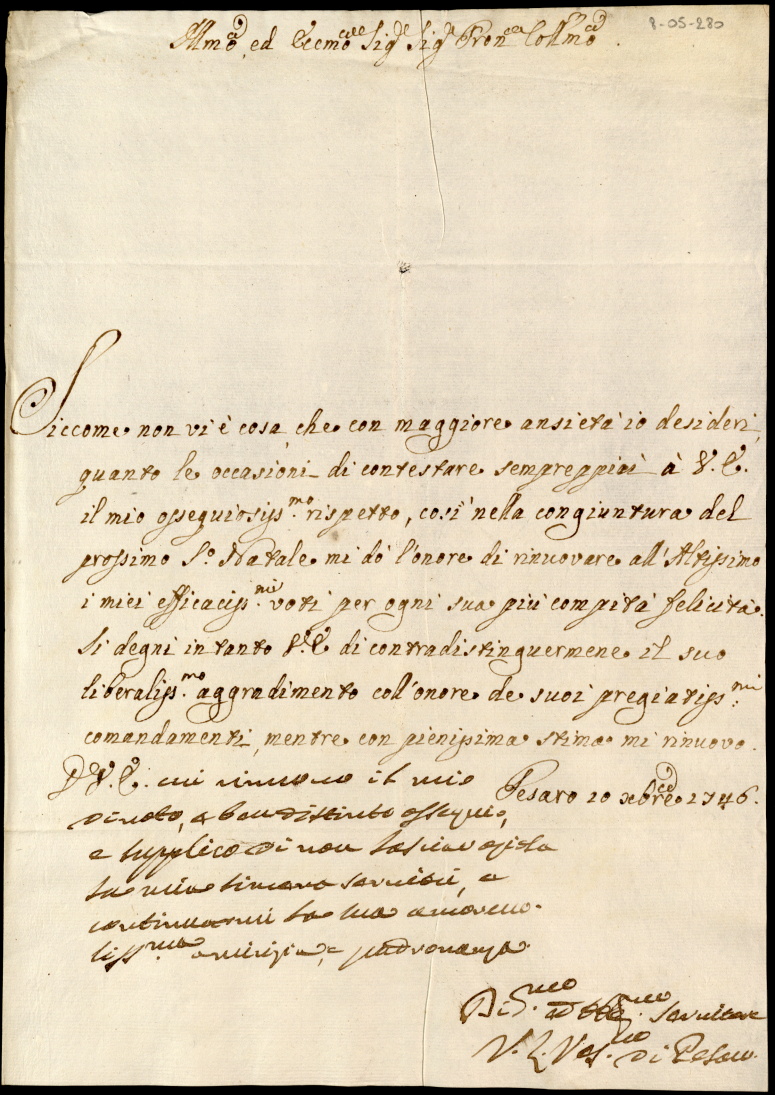 8-05-280
Illmo, ed Eccmo Sig.r Sig.r Pron Collmo.
Siccome non vi è cosa, che con maggiore ansietà io desideri,
quanto le occasioni di contestare sempreppiù à V.E.
il mio ossequiosiss.mo rispetto, così nella congiuntura del
prossimo S.o Natale mi dò l'onore di rinuovare all'Altissimo
i miei efficaciss.mi voti per ogni sua più compita felicità.
Si degni intanto V.E. di contradistinguermene il suo
liberaliss.mo aggradimento coll'onore de suoi pregiatiss.mi
comandamenti, mentre con pienissima stima mi rinuovo.
Di V.E. cui rinnovo il mio
Pesaro 20 xbre 1746.
divoto, e ben distinto ossequio,
e supplico di non lasciar
la mia sincera servitù, e
continuarmi la sua amorevo-
liss.ma amicizia, e padronanza.
Di.mo ed Obb.mo Servitore
V. L. Ves.vo di Pesaro.